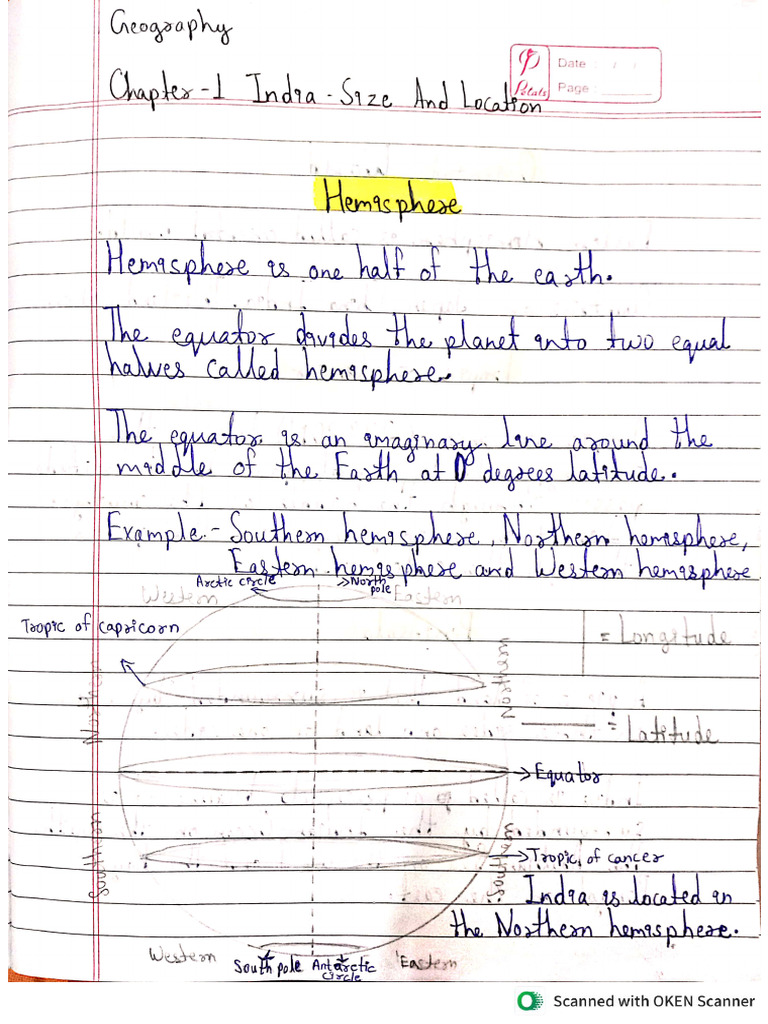 Geography
Date : / /
Page :
Petals
Chapter-1 India - Size And Location
Hemisphere
Hemisphere is one half of the earth.
The equator divides the planet into two equal
halves called hemisphere.
The equator is an imaginary line around the
middle of the Earth at 0 degrees latitude.
Example - Southern hemisphere, Northern hemisphere,
Eastern hemisphere and Western hemisphere
Western Arctic circle North pole Eastern
Tropic of capricorn
= Longitude
Northern
Northern
= Latitude
Equator
Southern
Southern
Tropic of cancer
India is located in
the Northern hemisphere.
Western South pole Antarctic circle Eastern
Scanned with OKEN Scanner